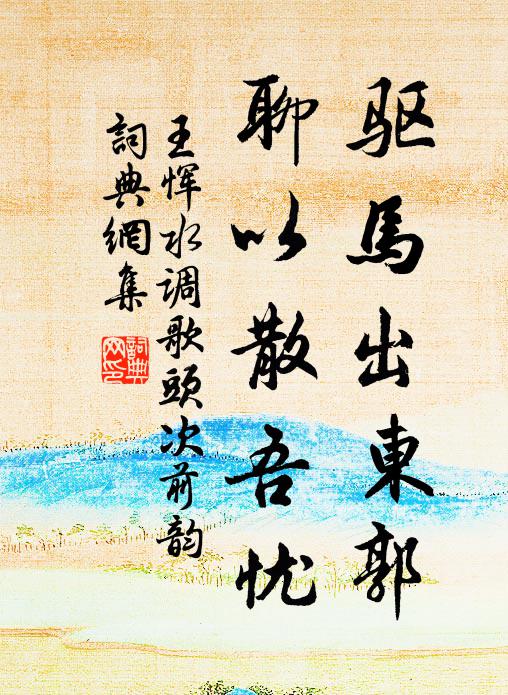 驱馬出東郭
聊以散吾忧
王恽水调歌頭次前韵
詞典網集
詞典
网印